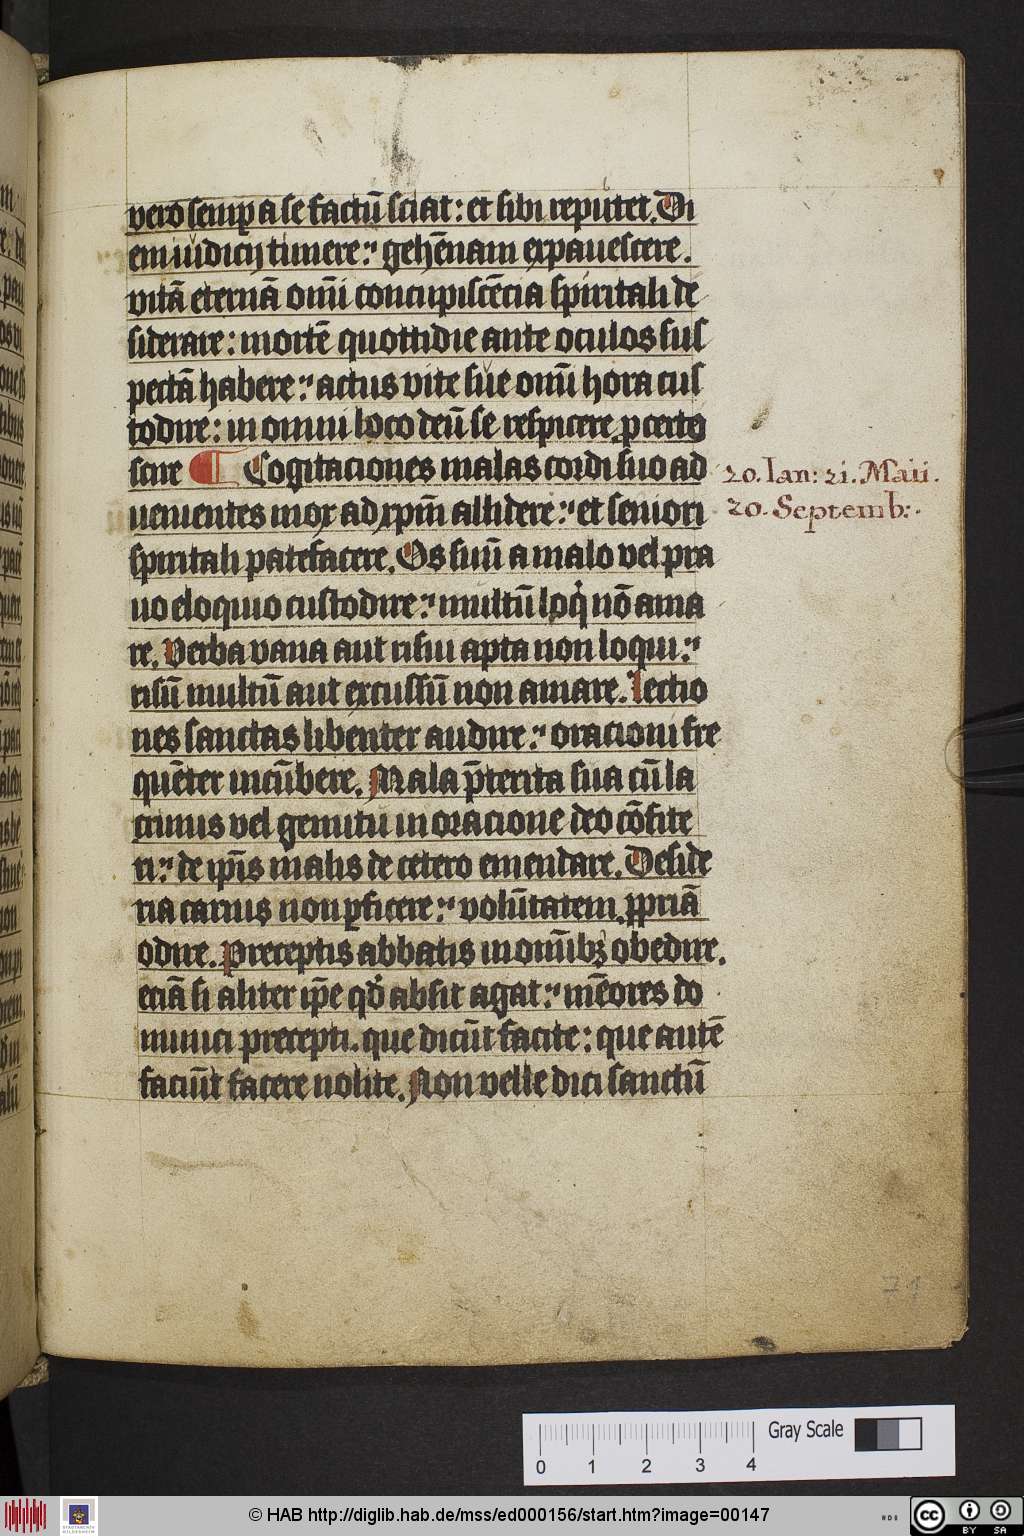 vero semꝑ a se factū sciat: et sibi reputet. Di
em iudicij timere: gehēnam expauescere.
vitā eternā om̄i concupiscēcia spiritali de
siderare: mortē quottidie ante oculos sus
pectā habere: actus vite sue om̄i hora cus
todire: in omni loco deū se respicere ꝓ certo
scire ¶ Cogitaciones malas cordi suo ad
uenientes mox ad xp̄m allidere: et seniori
spiritali patefacere. Os suū a malo vel pra
uo eloquio custodire: multū loqͥ nō ama
re. Verba vana aut risui apta non loqui:
risū multū aut excussū non amare. Lectio
nes sanctas libenter audire: oracioni fre
quēter incūbere. Mala p̄terita sua cū la
crimis vel gemitu in oracione deo cōfite
ri: de ip̄is malis de cetero emendare. Deside
ria carnis non ꝑficere: volūtatem ꝓpriā
odire. Preceptis abbatis in omībꝫ obedire.
eciā si aliter ip̄e qd̓ absit agat: mēores do
minici precepti. que dicūt facite: que autē
faciūt facere nolite. Non velle dici sanctū
20. Ian: 21. Maii.
20. Septemb:.
71
Gray Scale
0 1 2 3 4
© HAB http://diglib.hab.de/mss/ed000156/start.htm?image=00147
BY SA